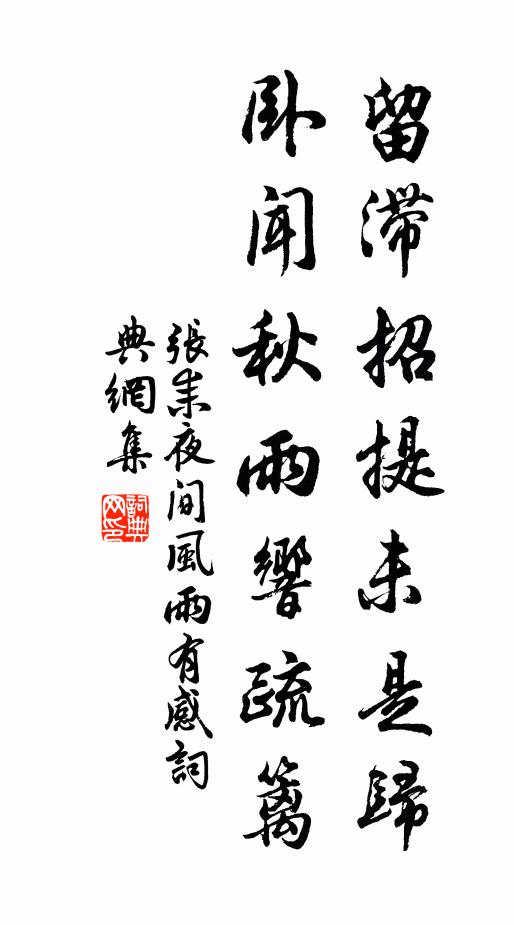 留滯招提未是歸
卧聞秋雨響疏籬
張耒夜間風雨有感詞
典網集
詞典網印